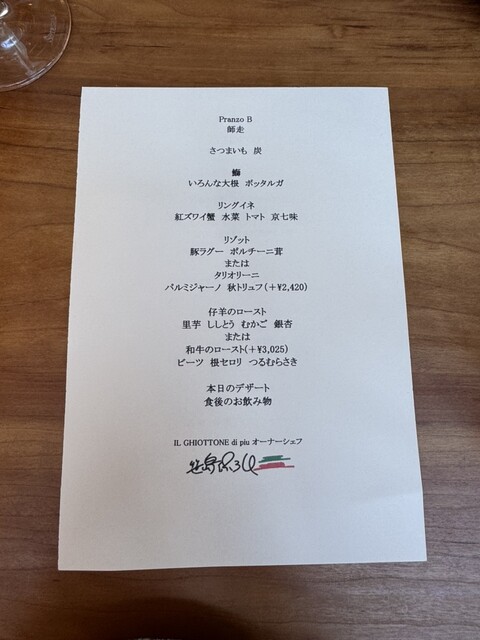 Pranzo B
師走
さつまいも 炭
鰤
いろんな大根 ボッタルガ
リングイネ
紅ズワイ蟹 水菜 トマト 京七味
リゾット
豚ラグー ポルチーニ茸
または
タリオリーニ
パルミジャーノ 秋トリュフ(+¥2,420)
仔羊のロースト
里芋 ししとう むかご 銀杏
または
和牛のロースト(+¥3,025)
ビーツ 根セロリ つるむらさき
本日のデザート
食後のお飲み物
IL GHIOTTONE di piu オーナーシェフ